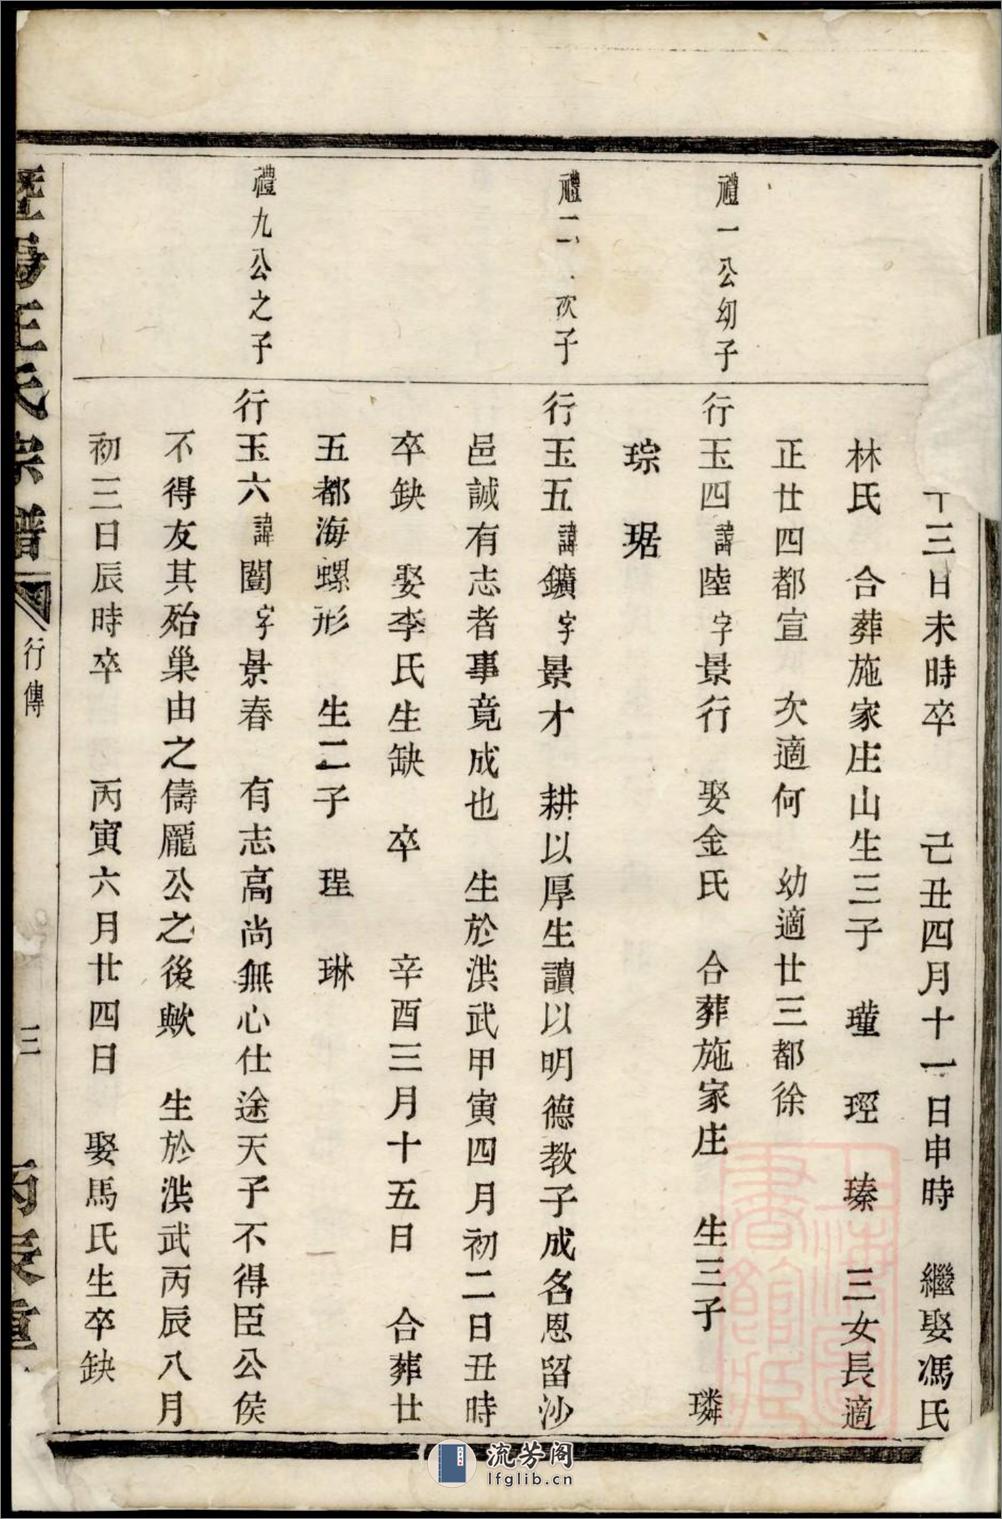 十三日未時卒　己丑四月十一日申時　繼娶馮氏
林氏　合葬施家庄山生三子　瑾　琊　瑧　三女長適
正廿四都宣　次適何　幼適廿三都徐
禮一公幼子
行玉四諱陸字景行　娶金氏　合葬施家庄　生三子　璘
琮　琚
禮二　次子
行玉五諱鑛字景才　耕以厚生讀以明德教子成名恩留沙
邑誠有志者事竟成也　生於洪武甲寅四月初二日丑時
卒缺　娶李氏生缺　卒　辛酉三月十五日　合葬廿
五都海螺形　生二子　珵　琳
禮九公之子
行玉六諱闓字景春　有志高尚無心仕途天子不得臣公侯
不得友其殆巢由之儔龐公之後歟　生於洪武丙辰八月
初三日辰時卒　丙寅六月廿四日　娶馬氏生卒缺
暨陽王氏宗譜　行傳　三　丙辰重
上海圖書館藏
流芳阁
lfglib.cn